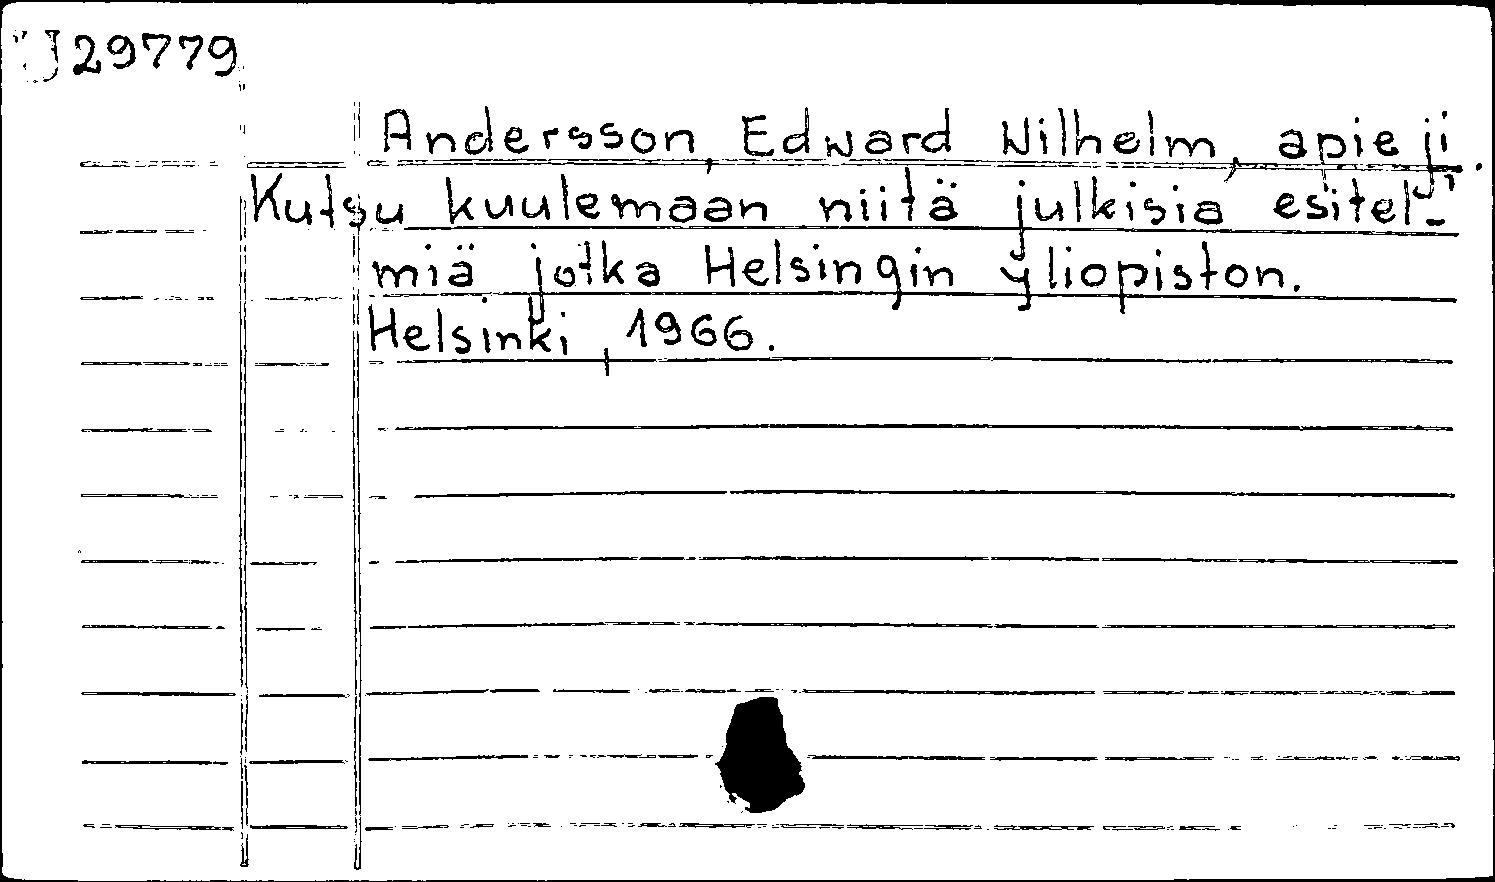 J29779
Andersson, Edward Wilhelm, apie ji.
Kutsu kuulemaan niitä julkisia esitel-
miä, jotka Helsingin yliopiston.
Helsinki, 1966.